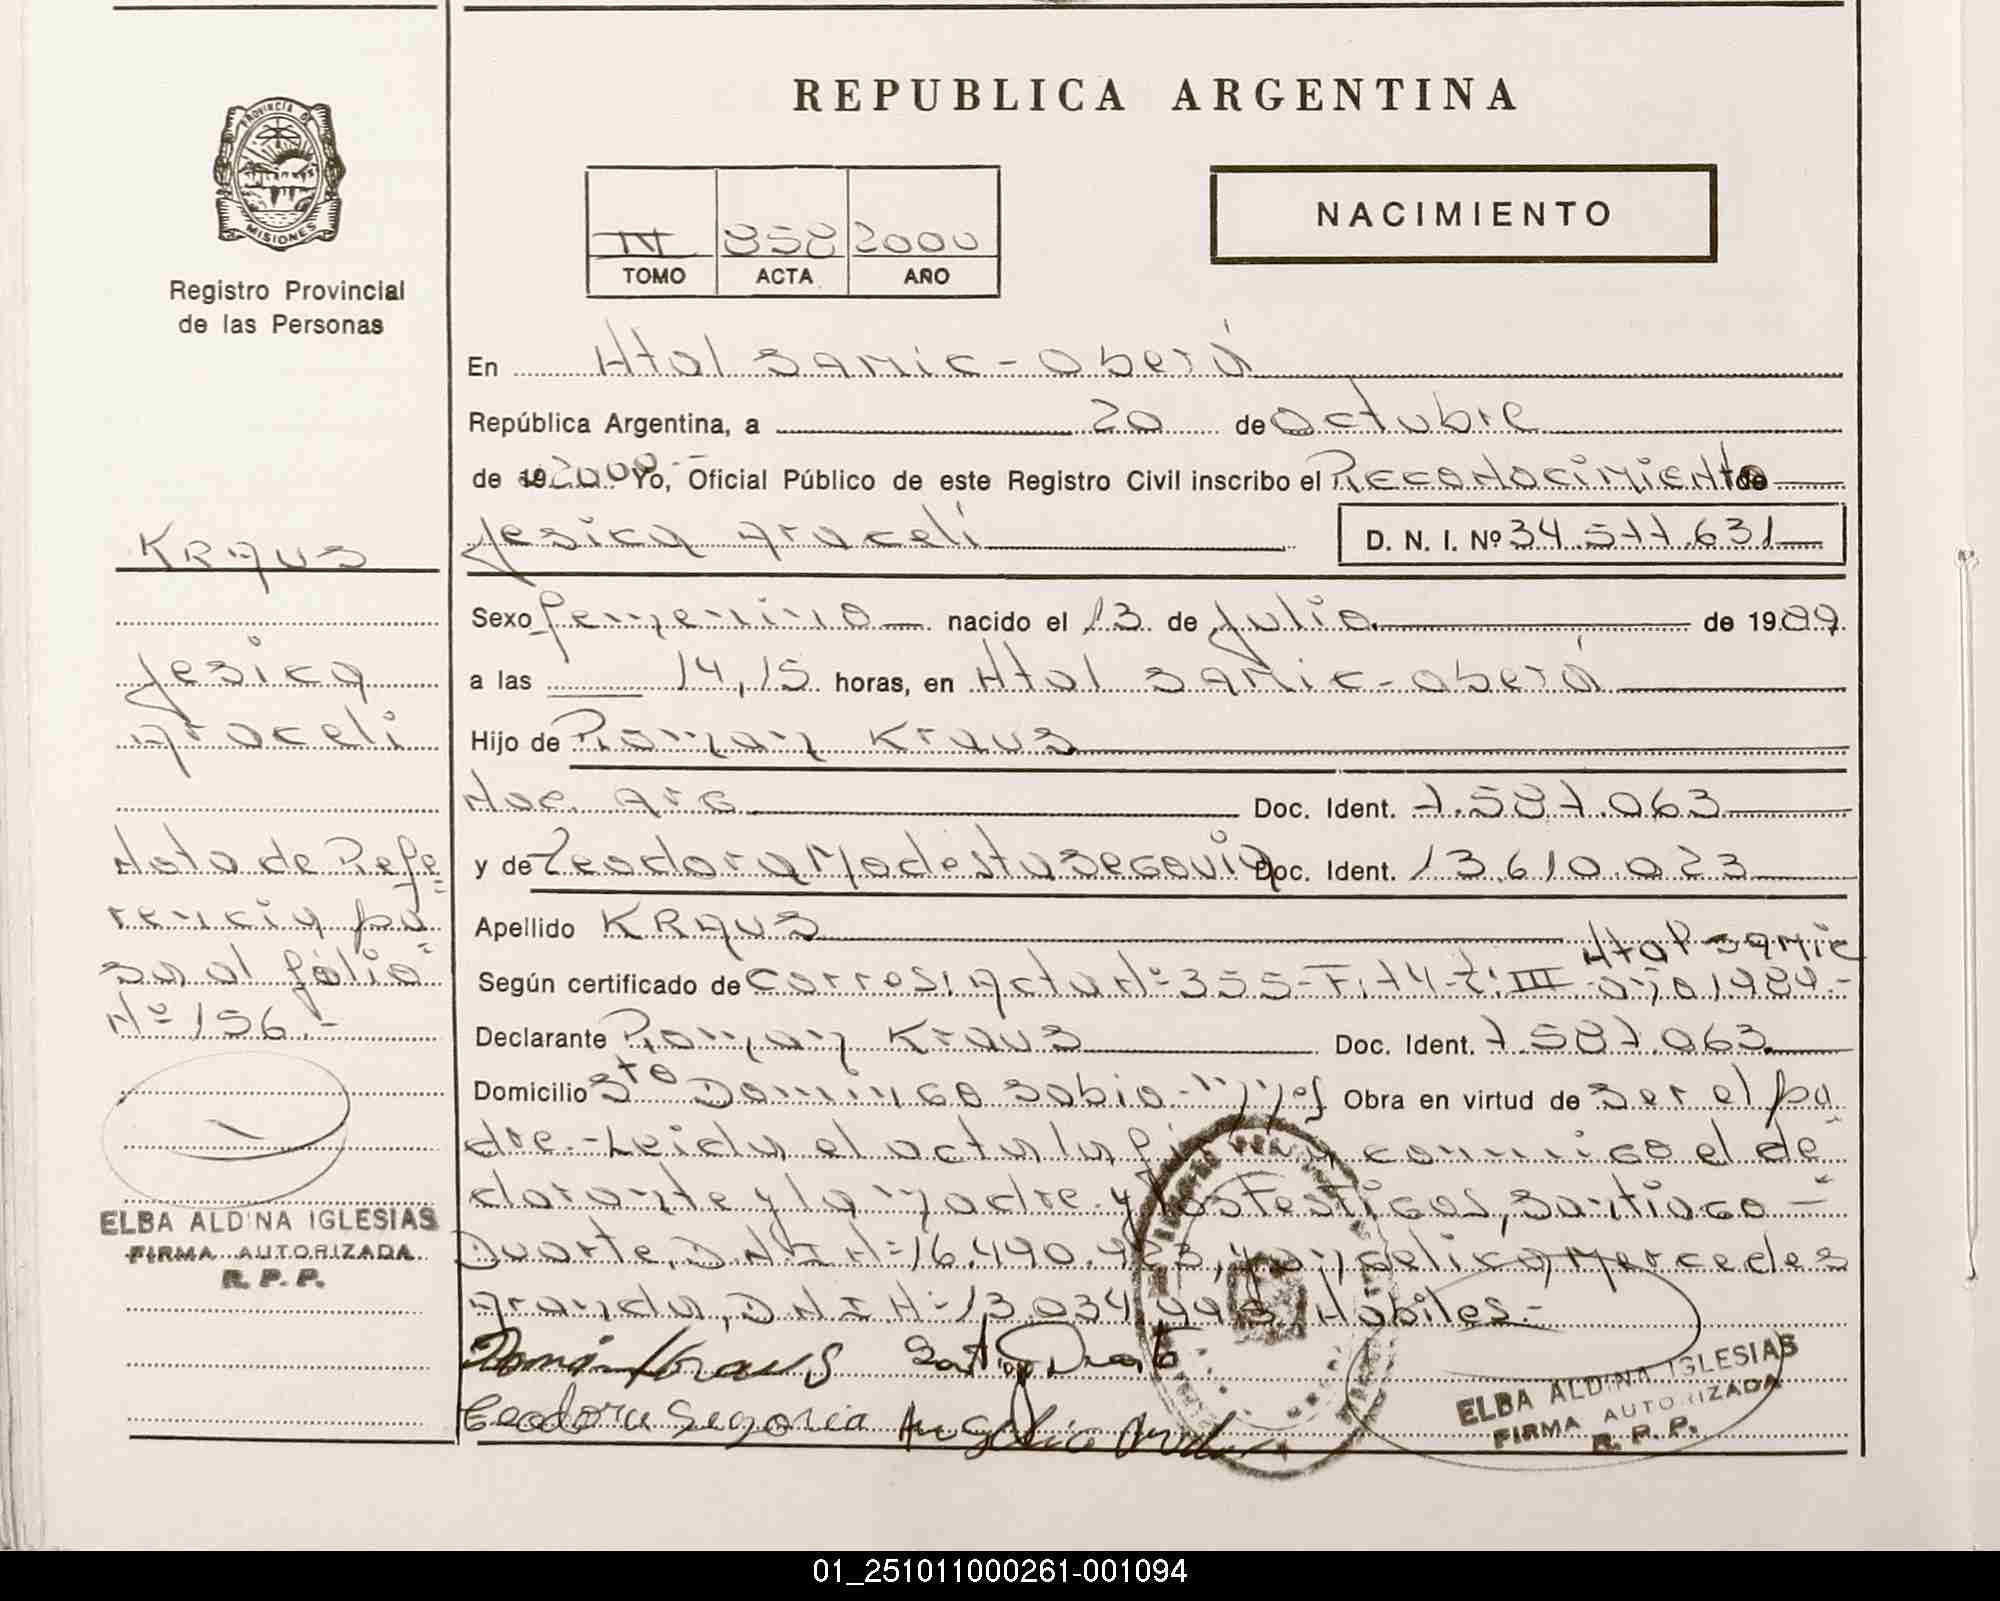 REPUBLICA ARGENTINA
PROVINCIA DE MISIONES
Registro Provincial
de las Personas
TOMO ACTA AÑO
858 2000
NACIMIENTO
En Htal SAMIC - Oberá
República Argentina, a 20 de Octubre
de 19 2000.- Yo, Oficial Público de este Registro Civil inscribo el Reconocimiento de
Jesica Araceli D. N. I. Nº 34.577.631
Sexo femenino nacido el 13 de Julio de 1989
a las 14,15 horas, en Htal SAMIC - Oberá
Hijo de Roman Kraus
Nac. Arg Doc. Ident. 7.587.063
y de Teodora Modesta Segovia Doc. Ident. 13.610.023
Apellido KRAUS Htal SAMIC
Según certificado de Corres: Acta Nº 355 - F: 74 - T: III - año 1989.-
Declarante Roman Kraus Doc. Ident. 7.587.063
Domicilio Sto Domingo Sabio - Obra en virtud de ser el pa
dre.- Leida el acta la conmigo el de
clarante y la madre y los testigos, Santiago
Duarte, D.N.I Nº 16.490.423, y Angelica Mercedes
D.N.I Nº 13.034.993, Habiles.-
Román Kraus Santiago Duarte
Teodora Segovia Angelica
ELBA ALDINA IGLESIAS
FIRMA AUTORIZADA
R. P. P.
KRAUS
Jesica
Araceli
Nota de Refe
rencia pa
sa al folio
Nº 156.-
ELBA ALDINA IGLESIAS
FIRMA AUTORIZADA
R. P. P.
01_251011000261-001094